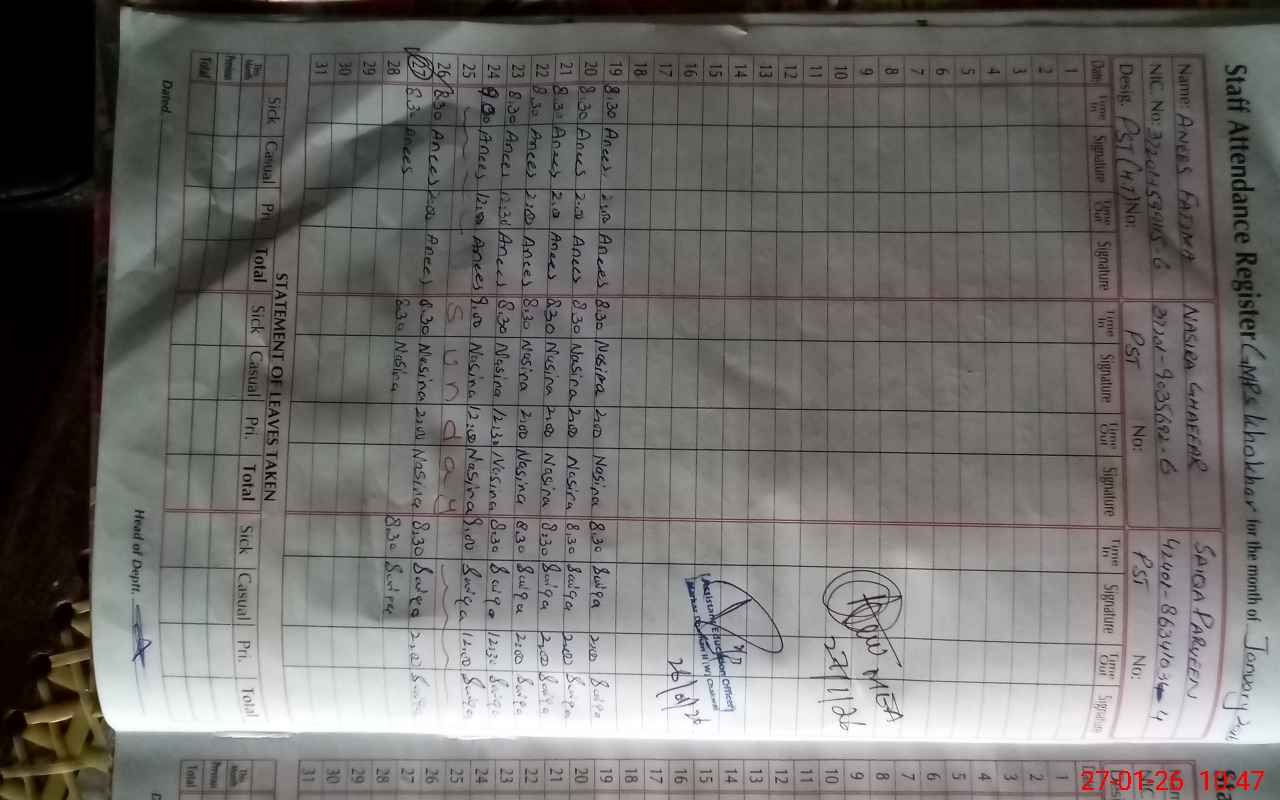 Staff Attendance Register GMPS Khokhar for the month of January
Name: ANEES FATIMA NASIRA GHAFFAR SAIQA PARVEEN
NIC. No:
Desig. PST No: PST No: PST No:
Date Time In Signature Time Out Signature Time In Signature Time Out Signature Time In Signature Time Out Signature
1
2
3
4
5
6
7
8
9
10
11
12
13
14
15
16
17
18
19 8:30 Anees 2:00 Anees 8:30 Nasira 2:00 Nasira 8:30 Saiqa 2:00 Saiqa
20 8:30 Anees 2:00 Anees 8:30 Nasira 2:00 Nasira 8:30 Saiqa 2:00 Saiqa
21 8:30 Anees 2:00 Anees 8:30 Nasira 2:00 Nasira 8:30 Saiqa 2:00 Saiqa
22 8:30 Anees 2:00 Anees 8:30 Nasira 2:00 Nasira 8:30 Saiqa 2:00 Saiqa
23 8:30 Anees 12:30 Anees 8:30 Nasira 12:30 Nasira 8:30 Saiqa 12:30 Saiqa
24 Anees 12:00 Anees 8:00 Nasira 12:00 Nasira 8:00 Saiqa 12:00 Saiqa
25 Sunday
26 8:30 Anees 2:00 Anees 8:30 Nasira 2:00 Nasira 8:30 Saiqa 2:00 Saiqa
27 8:30 Anees 8:30 Nasira 8:30 Saiqa
28
29
30
31
MEA
27/1/26
Assistant Education Officer
26/01/26
STATEMENT OF LEAVES TAKEN
Sick Casual Pri. Total Sick Casual Pri. Total Sick Casual Pri. Total
This Month
Previous
Total
Dated. Head of Deptt.
27-01-26 13:47